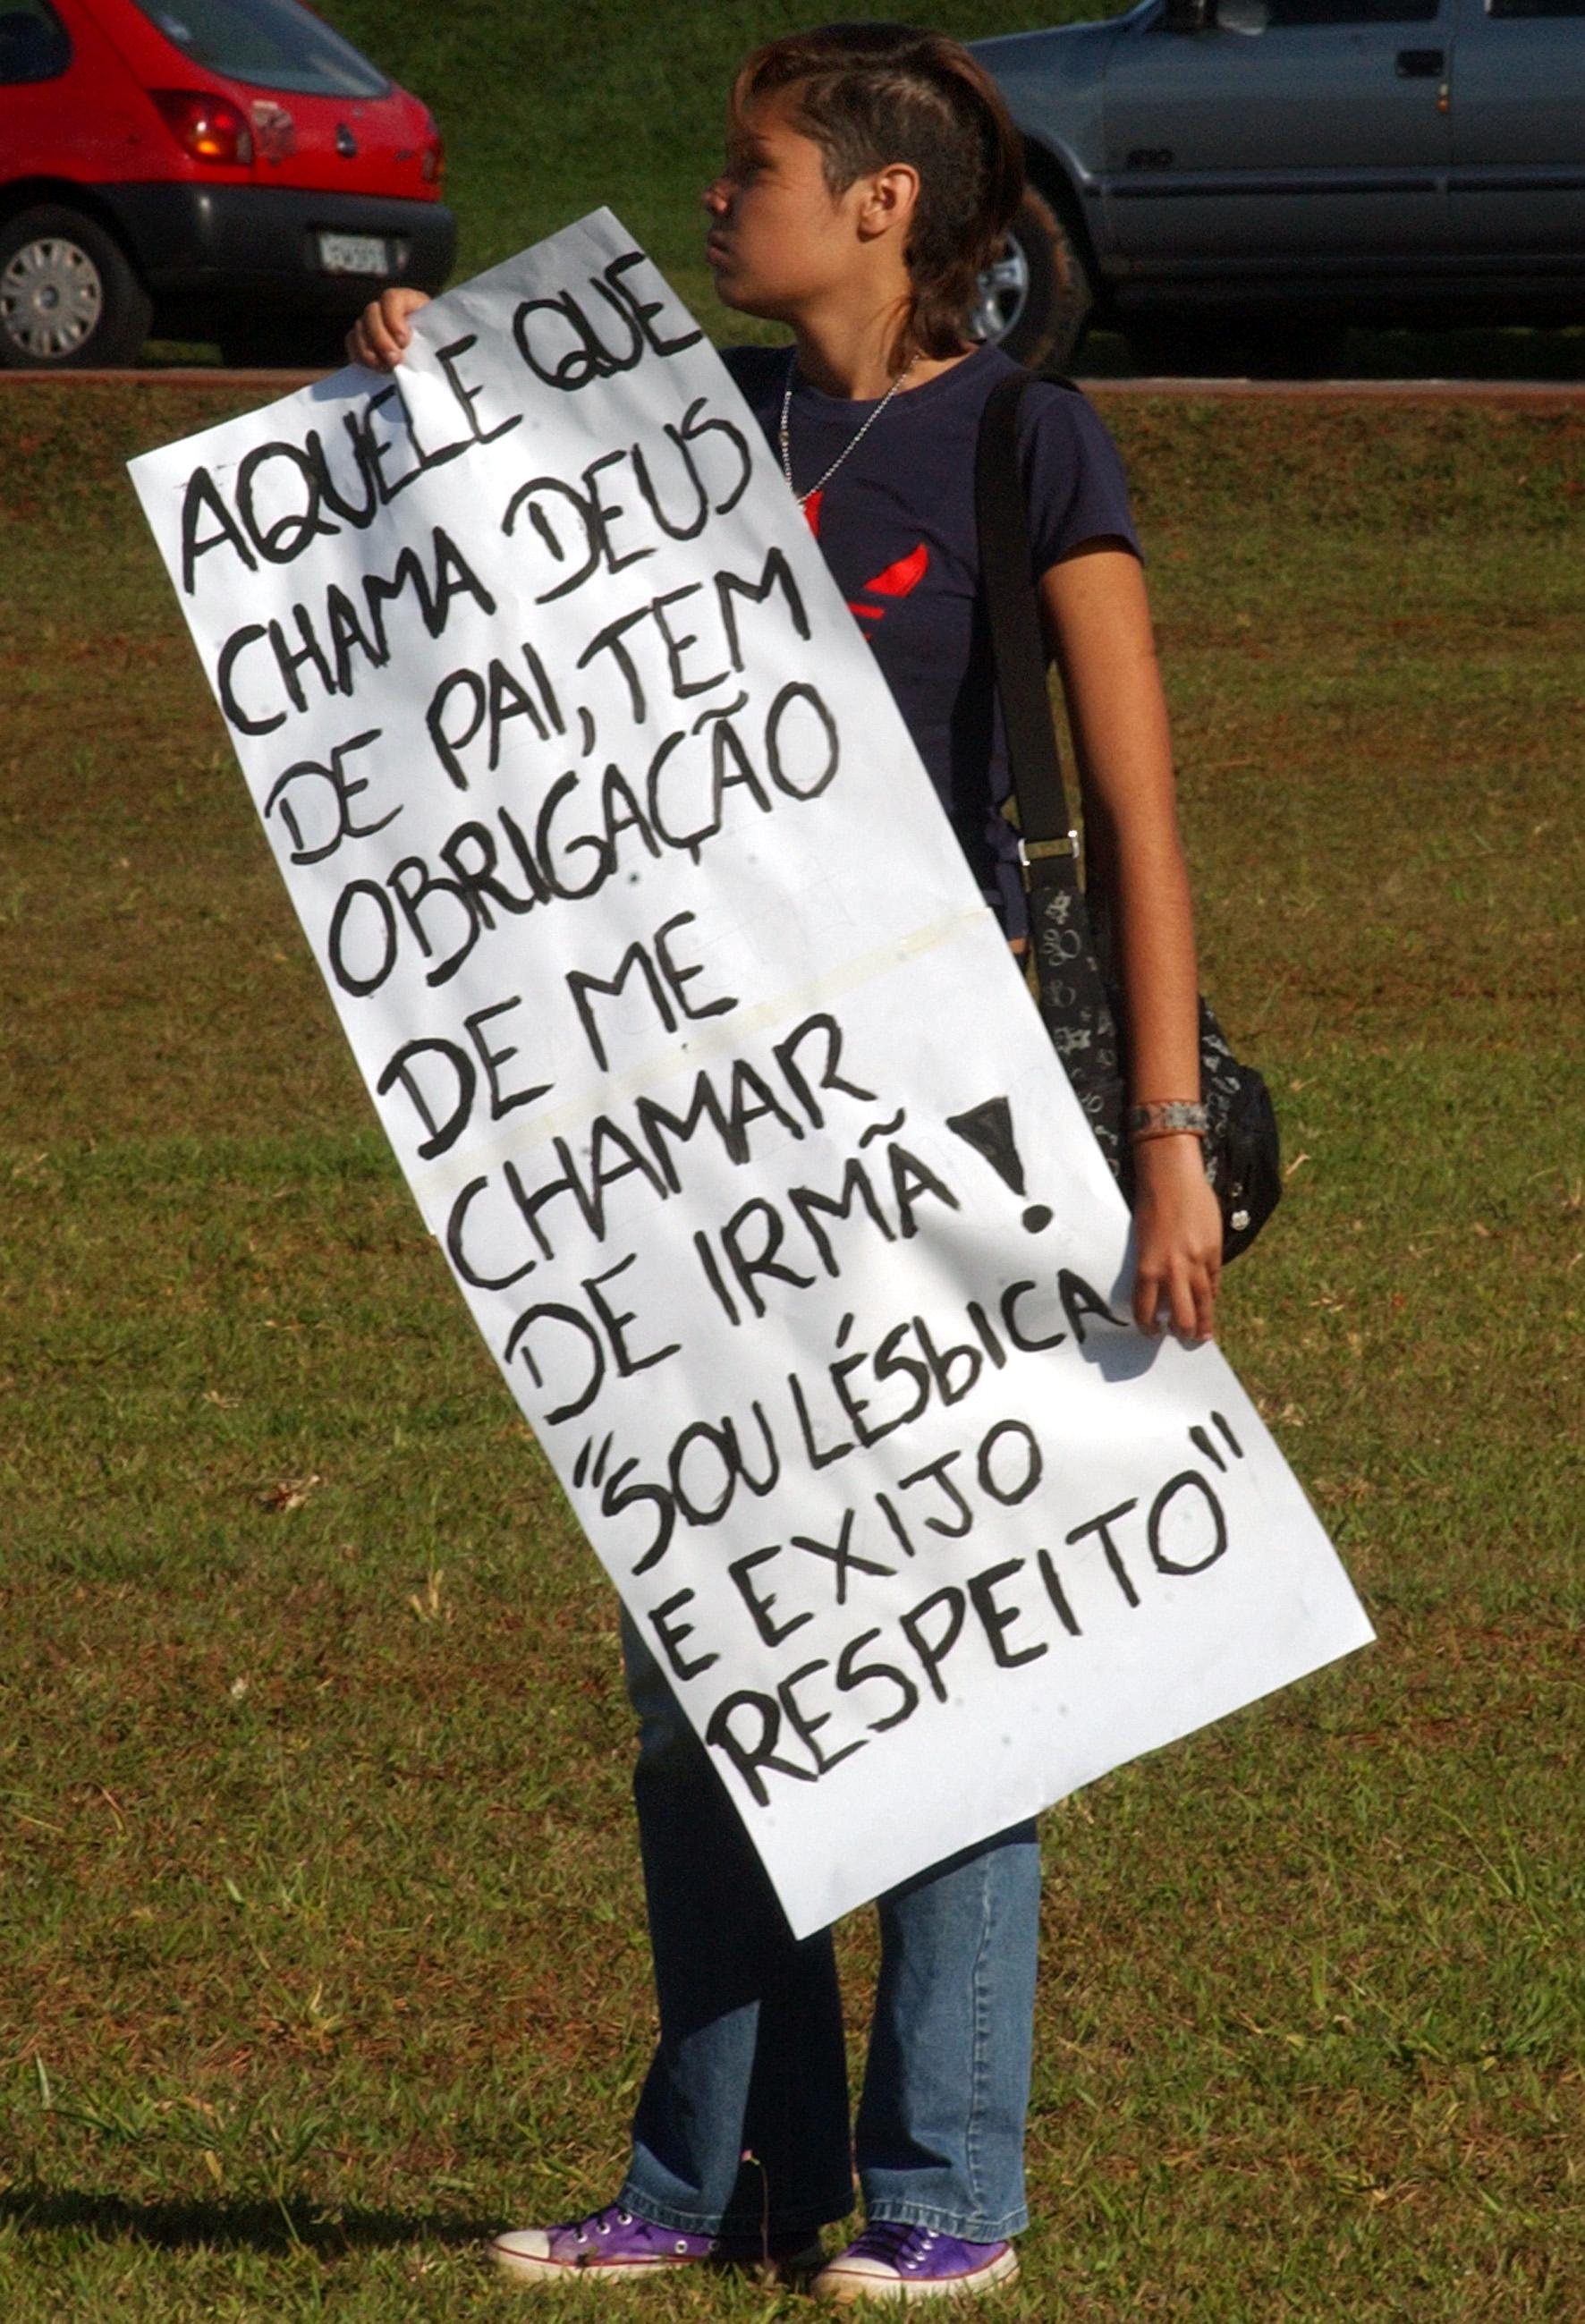 AQUELE QUE
CHAMA DEUS
DE PAI, TEM
OBRIGAÇÃO
DE ME
CHAMAR
DE IRMÃ!
"SOU LÉSbICA
E EXIJO
RESPEITO"
S10